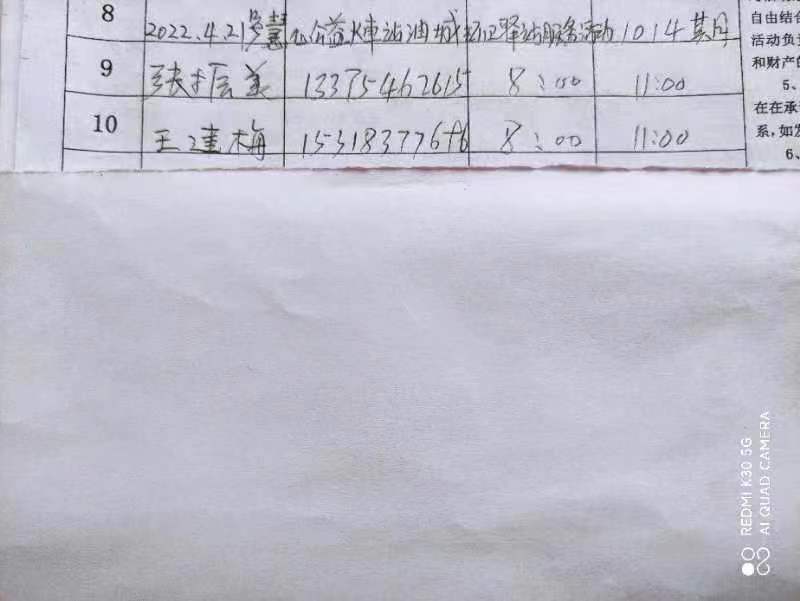 自由结合
8 2022.4.21 慧心公益火車站油城环卫驿站服务活动 1014 其月
活动负责
和财产的
9 张振美 13375462615 8:00 11:00
5、
在在承
10 王建梅 153183776 8:00 11:00
系,如发
6、
REDMI K30 5G
AI QUAD CAMERA